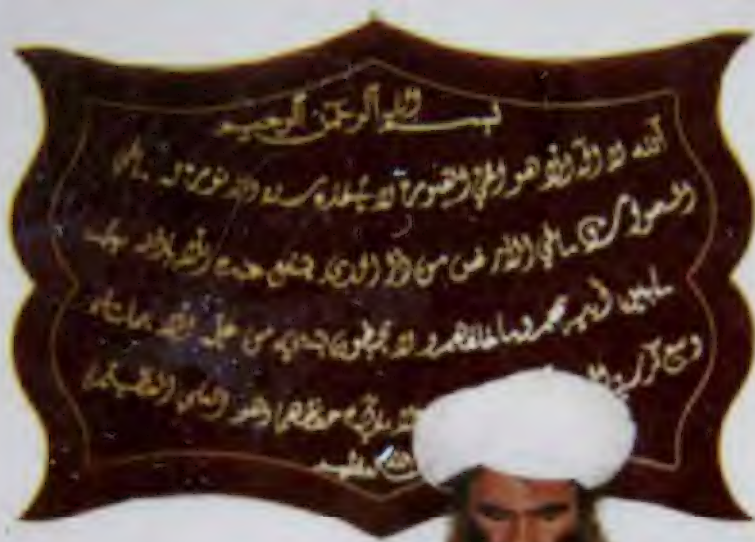 بسم الله الرحمن الرحيم
الله لا اله الا هو الحي القيوم لا تأخذه سنة ولا نوم له ما في
السموات وما في الأرض من ذا الذي يشفع عنده الا باذنه يعلم
ما بين أيديهم وما خلفهم ولا يحيطون بشيء من علمه الا بما شاء
وسع كرسيه حفظهما وهو العلي العظيم
الله العظيم